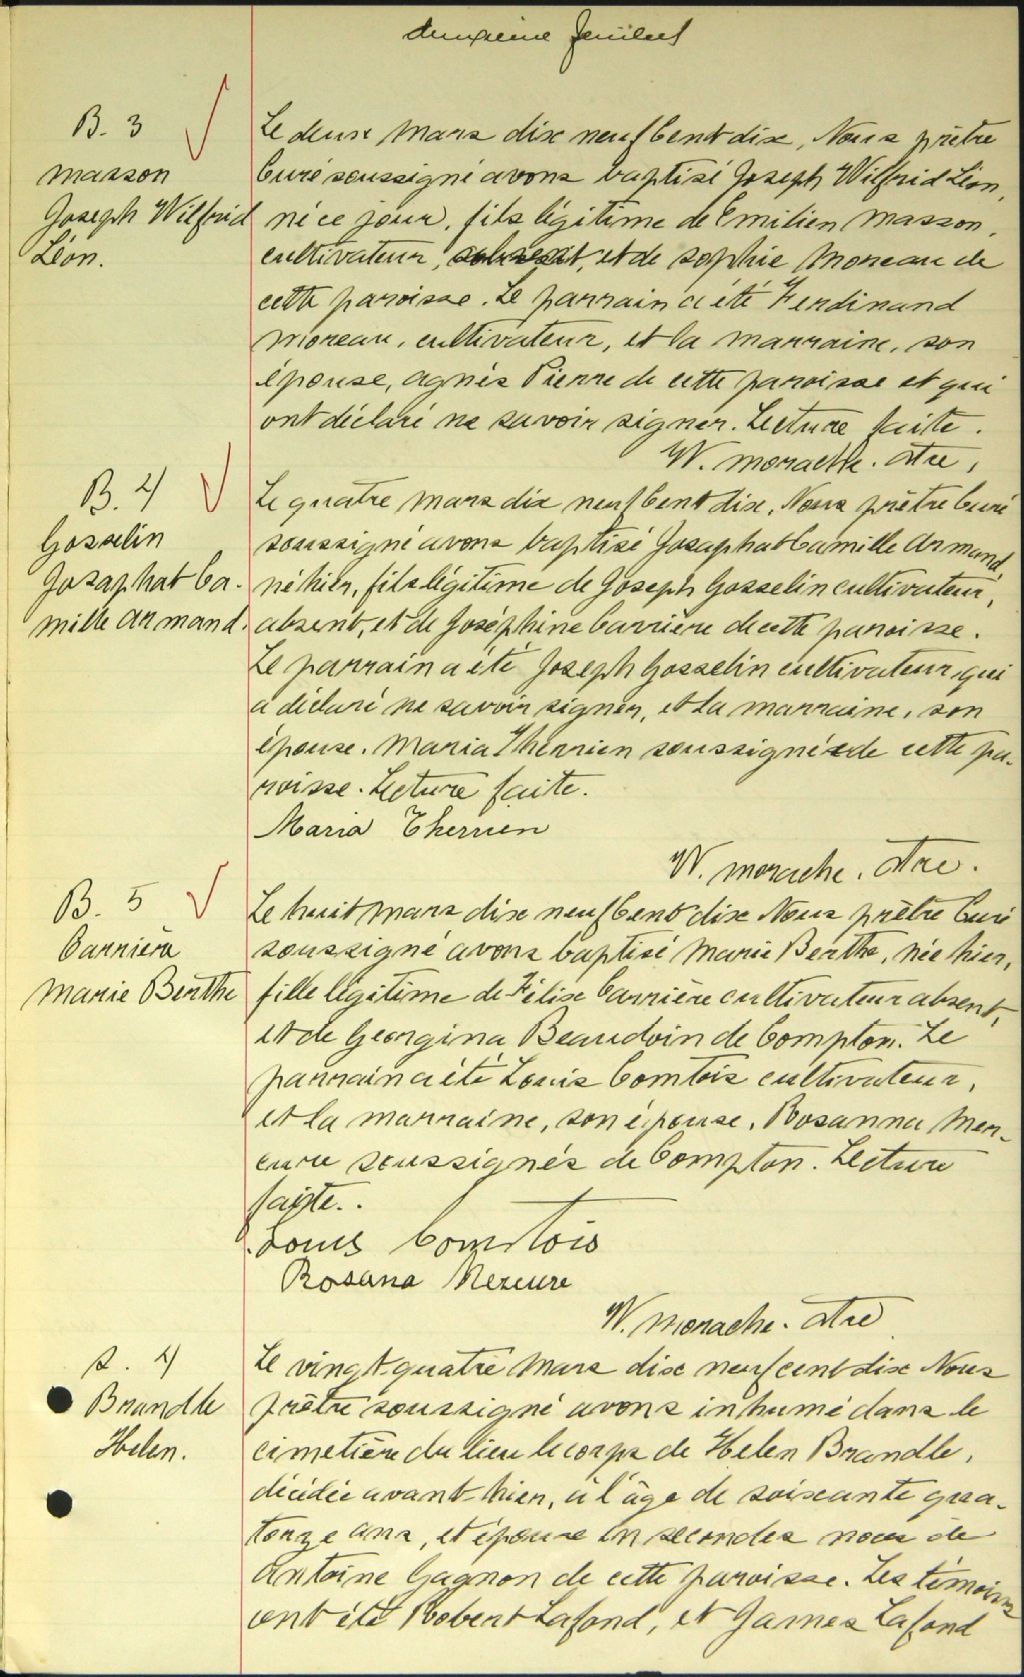 deuxième feuillet
B. 3
Masson
Joseph Wilfrid
Léon.
Le deux Mars dix neuf Cent dix, Nous prêtre
Curé soussigné avons baptisé Joseph Wilfrid Léon,
né ce jour, fils légitime de Emilien Masson,
cultivateur, absent, et de Sophie Moreau de
cette paroisse. Le parrain a été Ferdinand
Moreau, cultivateur, et la marraine, son
épouse, Agnès Pierre de cette paroisse et qui
ont déclaré ne savoir signer. Lecture faite.
W. Morache. Ptre,
B. 4
Gosselin
Josaphat Ca-
mille Armand.
Le quatre Mars dix neuf Cent dix, Nous prêtre Curé
soussigné avons baptisé Josaphat Camille Armand,
né hier, fils légitime de Joseph Gosselin cultivateur,
absent, et de Joséphine Carrière de cette paroisse.
Le parrain a été Joseph Gosselin cultivateur qui
a déclaré ne savoir signer, et la marraine, son
épouse. Maria Therrien soussignée de cette pa-
roisse. Lecture faite.
Maria Therrien
W. Morache. Ptre.
B. 5
Carrière
Marie Berthe
Le huit Mars dix neuf Cent dix Nous prêtre Curé
soussigné avons baptisé Marie Berthe, née hier,
fille légitime de Félix Carrière cultivateur absent,
et de Georgina Beaudoin de Compton. Le
parrain a été Louis Comtois cultivateur,
et la marraine, son épouse, Rosanna Mer-
cure soussignés de Compton. Lecture
faite..
Louis Comtois
Rosana Mercure
W. Morache. Ptre
S. 4
Brandle
Helen.
Le vingt-quatre Mars dix neuf cent dix Nous
prêtre soussigné avons inhumé dans le
cimetière du lieu le corps de Helen Brandle,
décédée avant-hier, à l'âge de soixante qua-
torze ans, et épouse en secondes noces de
Antoine Gagnon de cette paroisse. Les témoins
ont été Robert Lafond, et James Lafond